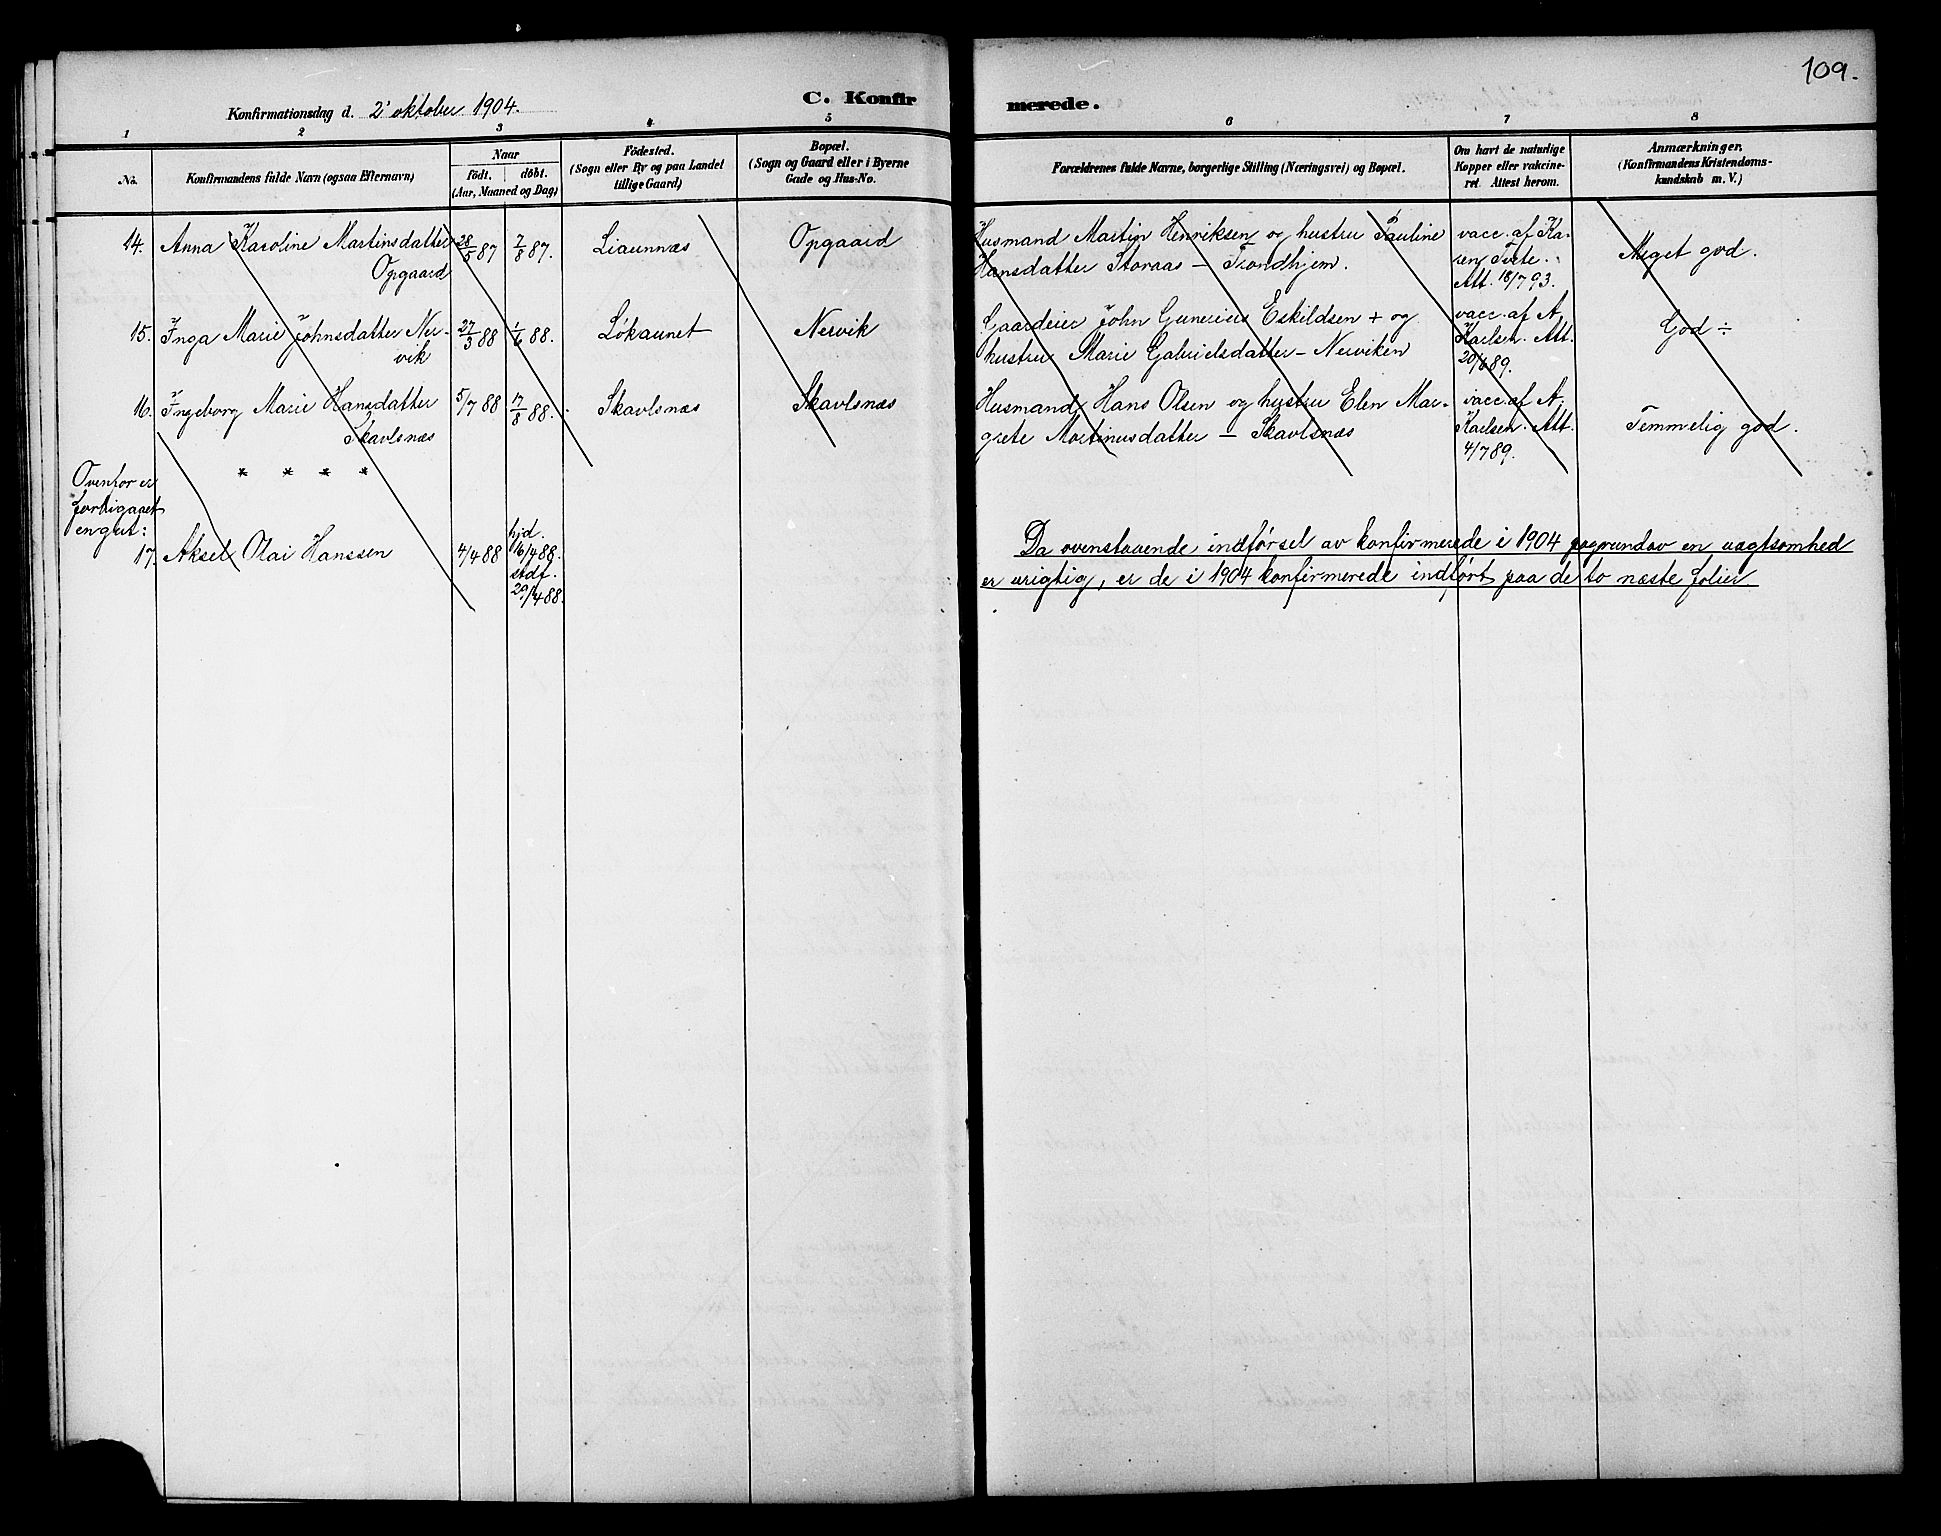 109.
C. Konfirmerede.
Konfirmationsdag d. 2' oktober 1904.
1 2 3 4 5 6 7 8
No.
Konfirmandens fulde Navn (ogsaa Efternavn)
Naar
födt. döbt.
(Aar, Maaned og Dag)
Födested.
(Sogn eller By og paa Landet
tillige Gaard)
Bopæl.
(Sogn og Gaard eller i Byerne
Gade og Hus-No.
Forældrenes fulde Navne, borgerlige Stilling (Næringsvei) og Bopæl.
Om havt de naturlige
Kopper eller vakcine-
ret. Attest herom.
Anmærkninger.
(Konfirmandens Kristendoms-
kundskab m. V.)
14. Anna Karoline Martinsdatter 28/5 87 7/8 87. Liaunnæs Opgaard
Opgaard
Husmand Martin Henriksen og hustru Pauline
Hansdatter Storaas – Trondhjem.
vacc. af Ka-
ren Tvete.
Att. 18/7 93.
Meget god.
15. Inga Marie Johnsdatter Ner- 27/3 88 1/6 88. Lökaunet Nervik
vik
Gaardeier John Gunerius Eskildsen + og
hustru Marie Gabrielsdatter – Nerviken
vacc. af A.
Karlsen. Att.
20/6 89.
God ÷
16. Ingeborg Marie Hansdatter 5/7 88 17/8 88. Skavlsnæs Skavlsnæs
Skavlsnæs
Husmand Hans Olsen og hustru Elen Mar-
grete Martinusdatter – Skavlsnæs
vacc. af A.
Karlsen. Att.
4/7 89.
Temmelig god.
* * * *
Ovenfor er
forbigaaet
en gut:
17. Aksel Olai Hanssen 4/4 88 hjd.
16/4 88.
stdf.
29/4 88.
Da ovenstaaende indförsel av konfirmerede i 1904 paagrundav en uagtsomhed
er urigtig, er de i 1904 konfirmerede indfört paa de to næste folier